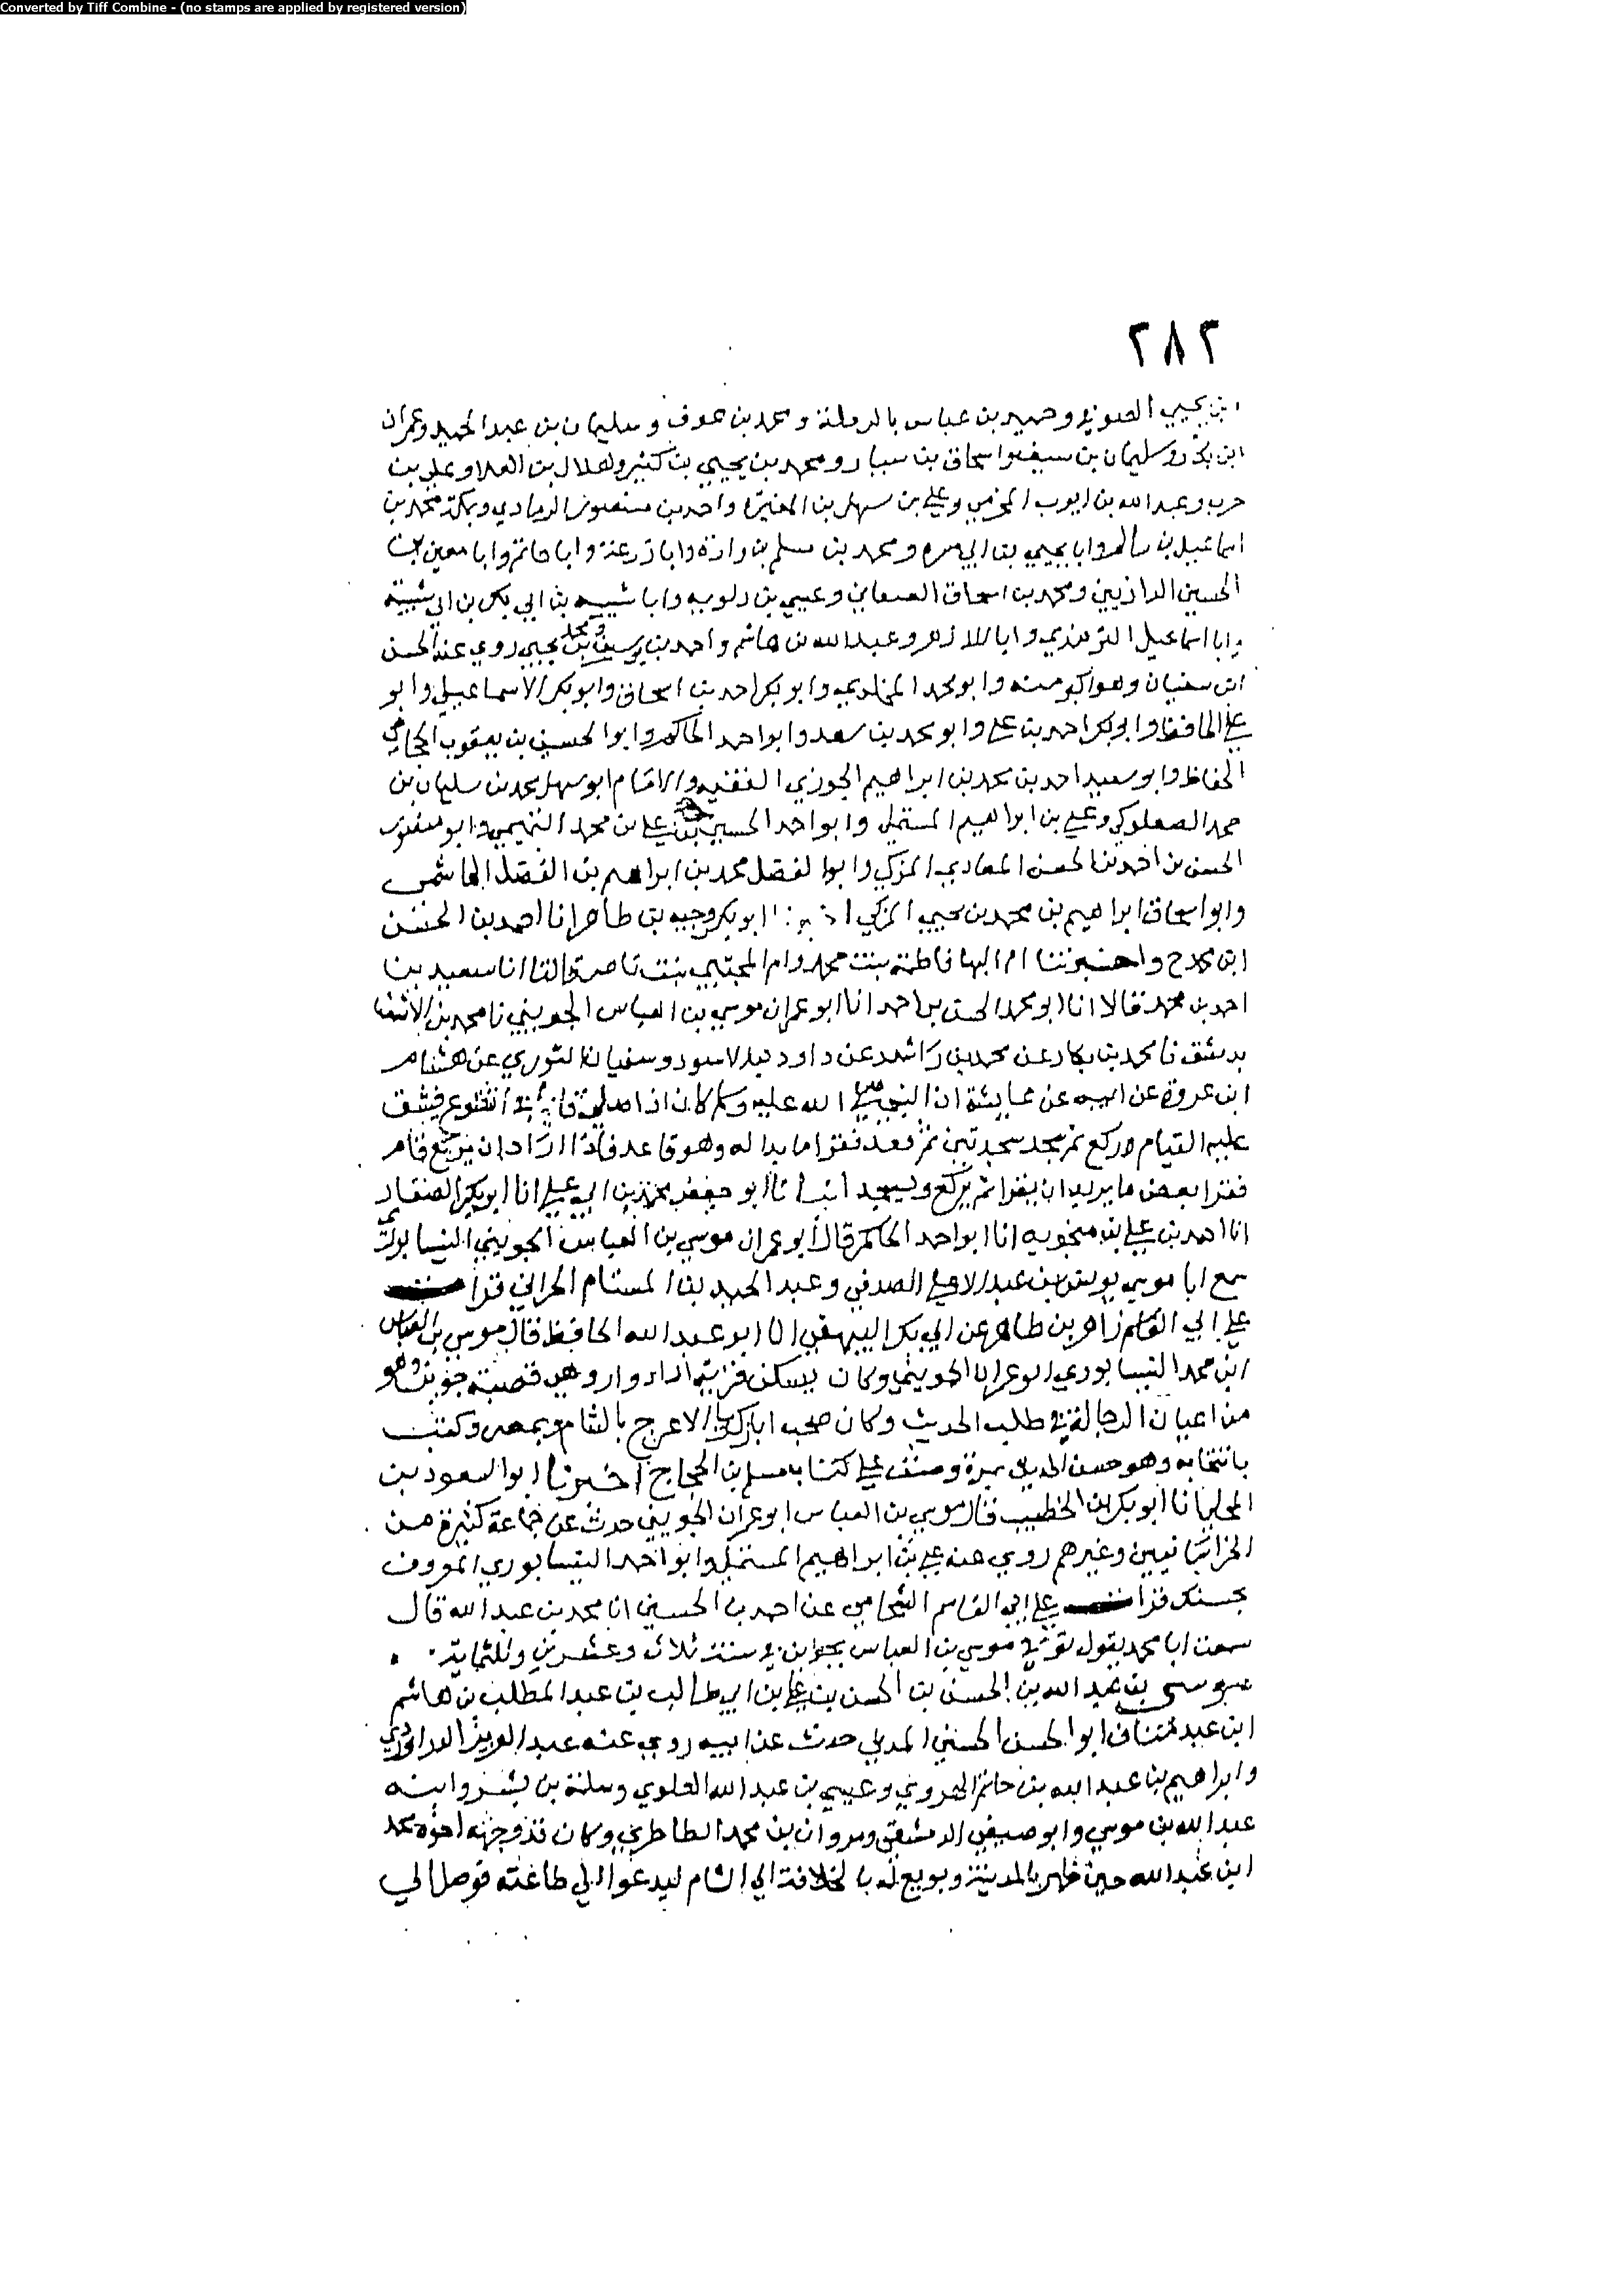 Converted by Tiff Combine - (no stamps are applied by registered version)
٢٨٢
ابن يحيي الصوفي وحميد بن عباس بالرملة ومحمد بن عوف وسليمان بن عبد الحميد وعمران
ابن بكار وسليمان بن سيف واسحاق بن سيار ومحمد بن يحيي بن كثير وهلال بن العلا وعلي بن
حرب وعبد الله بن ايوب المخرمي وعلي بن سهل بن المغيرة واحمد بن منصور الرمادي وبمكة محمد بن
اسماعيل بن سالم وابا يحيي بن ابي مسره ومحمد بن مسلم بن وارة وابا زرعة وابا حاتم وابا معين بن
الحسين الرازيين ومحمد بن اسحاق الصغاني وعيسي بن دلويه وابا شيبه بن ابي بكر بن ابي شيبة
وابا اسماعيل الترمذي وابا الازهر وعبد الله بن هاشم واحمد بن يوسف ومحمد بن يحيي روي عنه الحسن
ابن سفيان وهو اكبر منه وابو محمد المخلدي وابو بكر احمد بن اسحاق وابو بكر الاسماعيلي وابو
علي الحافظ وابو بكر احمد بن علي وابو محمد بن سعد وابو احمد الحاكم وابو الحسين بن يعقوب الحجاجي
الحفاظ وابو سعيد احمد بن محمد بن ابراهيم الجوزي الفقيه والامام ابو سهل محمد بن سليمان بن
محمد الصعلوكي وعلي بن ابراهيم المستملي وابو احمد الحسين بن علي بن محمد التميمي وابو منصور
الحسن بن احمد بن الحسن المعادي المزكي وابو الفضل محمد بن ابراهيم بن الفضل الهاشمي
وابو اسحاق ابراهيم بن محمد بن يحيي المزكي ابو بكر وجيه بن طاهر انا احمد بن الحسن
ابن محمد ح واخبرتنا ام البها فاطمة بنت محمد وام المجتبي بنت ناصر قالتا انا سعيد بن
احمد بن محمد قالا انا ابو محمد الحسن بن احمد انا ابو عمران موسي بن العباس الجويني نا محمد بن الاشعث
بدمشق نا محمد بن بكار عن محمد بن راشد عن داود بن الاسود وسفيان الثوري عن هشام
ابن عروة عن ابيه عن عايشة ان النبي صلي الله عليه وسلم كان اذا صلي التطوع فشق
عليه القيام ركع ثم سجد سجدتين ثم قعد فقرا ما بدا له وهو قاعد فاذا اراد ان يركع قام
فقرا بعض ما يريد ان يقرا ثم يركع ويسجد انبانا ابو جعفر محمد بن ابي علي انا ابو بكر الصفار
انا احمد بن علي بن منجويه انا ابو احمد الحاكم قال ابو عمران موسي بن العباس الجويني النيسابوري
سمع ابا موسي يونس بن عبد الاعلي الصدفي وعبد الحميد بن المستام الحراني قرا
علي ابي القاسم زاهر بن طاهر عن ابي بكر البيهقي انا ابو عبد الله الحافظ قال موسي بن العباس
ابن محمد النيسابوري ابو عمران الجويني وكان يسكن قرية ازادوار وهي قصبة جوين وهو
من اعيان الرحالة في طلب الحديث وكان صحب ابا زكريا الاعرج بالشام وبمصر وكتب
بانتخابه وهو حسن الحديث بمرة وصنف علي كتاب مسلم بن الحجاج اخبرنا ابو السعود بن
المجلي نا ابو بكر بن الخطيب قال موسي بن العباس ابو عمران الجويني حدث عن جماعة كثيرة من
الخراسانيين وغيرهم روي عنه علي بن ابراهيم المستملي وابو احمد النيسابوري المعروف
بحسنك قرا علي ابي القاسم الشحامي عن احمد بن الحسين انا محمد بن عبد الله قال
سمعت ابا محمد يقول توفي موسي بن العباس بجوين في سنة ثلاث وعشرين وثلثماية
موسي بن عبد الله بن الحسن بن الحسن بن علي بن ابي طالب بن عبد المطلب بن هاشم
ابن عبد مناف ابو الحسن الحسني المدني حدث عن ابيه روي عنه عبد العزيز الدراوردي
وابراهيم بن عبد الله بن حاتم الهروي وعيسي بن عبد الله العلوي وسلمة بن بشر وابنه
عبد الله بن موسي وابو صيفي الدمشقي ومروان بن محمد الطاطري وكان قد وجهه اخوه محمد
ابن عبد الله حين ظهر بالمدينة وبويع له بالخلافة الي الشام ليدعوا الي طاعته فوصل الي